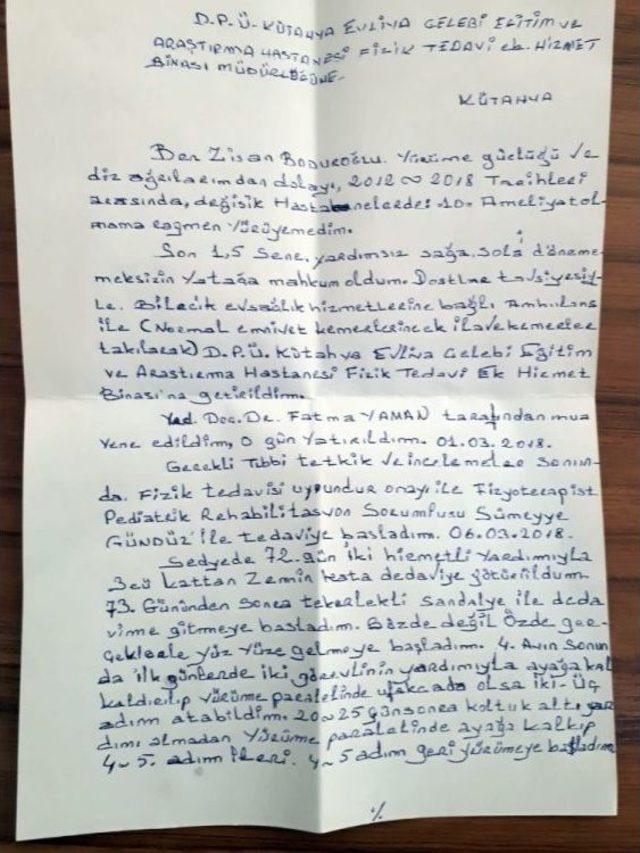 D.P.Ü. KÜTAHYA EVLİYA ÇELEBİ EĞİTİM VE
ARAŞTIRMA HASTANESİ FİZİK TEDAVİ ek. HİZMET
BİNASI MÜDÜRLÜĞÜNE.
KÜTAHYA
Ben Zişan BODUROĞLU. Yürüme güçlüğü ve
diz ağrılarımdan dolayı, 2012 ~ 2018 Tarihleri
arasında, değişik Hastahanelerde: 10. Ameliyat ol-
mama rağmen Yürüyemedim.
Son 1,5 Sene, yardımsız sağa, sola döneme
meksizin Yatağa mahkum oldum. Dostlar tavsiyesiy-
le. Bilecik evsağlık hizmetlerine bağlı Ambulans
ile (Normal emniyet kemerlerine ek ilave kemerler
takılarak) D.P.Ü. Kütahya Evliya Çelebi Eğitim
ve Araştırma Hastanesi Fizik Tedavi Ek Hizmet
Binası'na getirildim.
Yrd. Doç. Dr. Fatma YAMAN tarafından mua
yene edildim, O gün Yatırıldım. 01.03.2018.
Gerekli Tıbbi tetkik ve incelemeler sonun-
da. Fizik tedavisi uygundur onayı ile Fizyoterapist
Pediatrik Rehabilitasyon Sorumlusu Sümeyye
GÜNDÜZ ile tedaviye başladım. 06.03.2018.
Sedyede 72. gün iki hizmetli Yardımıyla
3cü kattan Zemin kata dedaviye götürüldüm
73. Gününden sonra tekerlekli sandalye ile deda
vime gitmeye başladım. Sözde değil Özde ger-
çeklerle yüz yüze gelmeye başladım. 4. Ayın sonun
da ilk günlerde iki görevlinin yardımıyla ayağa kal
kaldırılıp yürüme paralelinde ufakcada olsa iki-Üç
adım atabildim. 20~25 gün sonra koltuk altı yar
dımı almadan Yürüme paralelinde ayağa kalkıp
4~5. adım ileri. 4~5 adım geri yürümeye başladım
./.